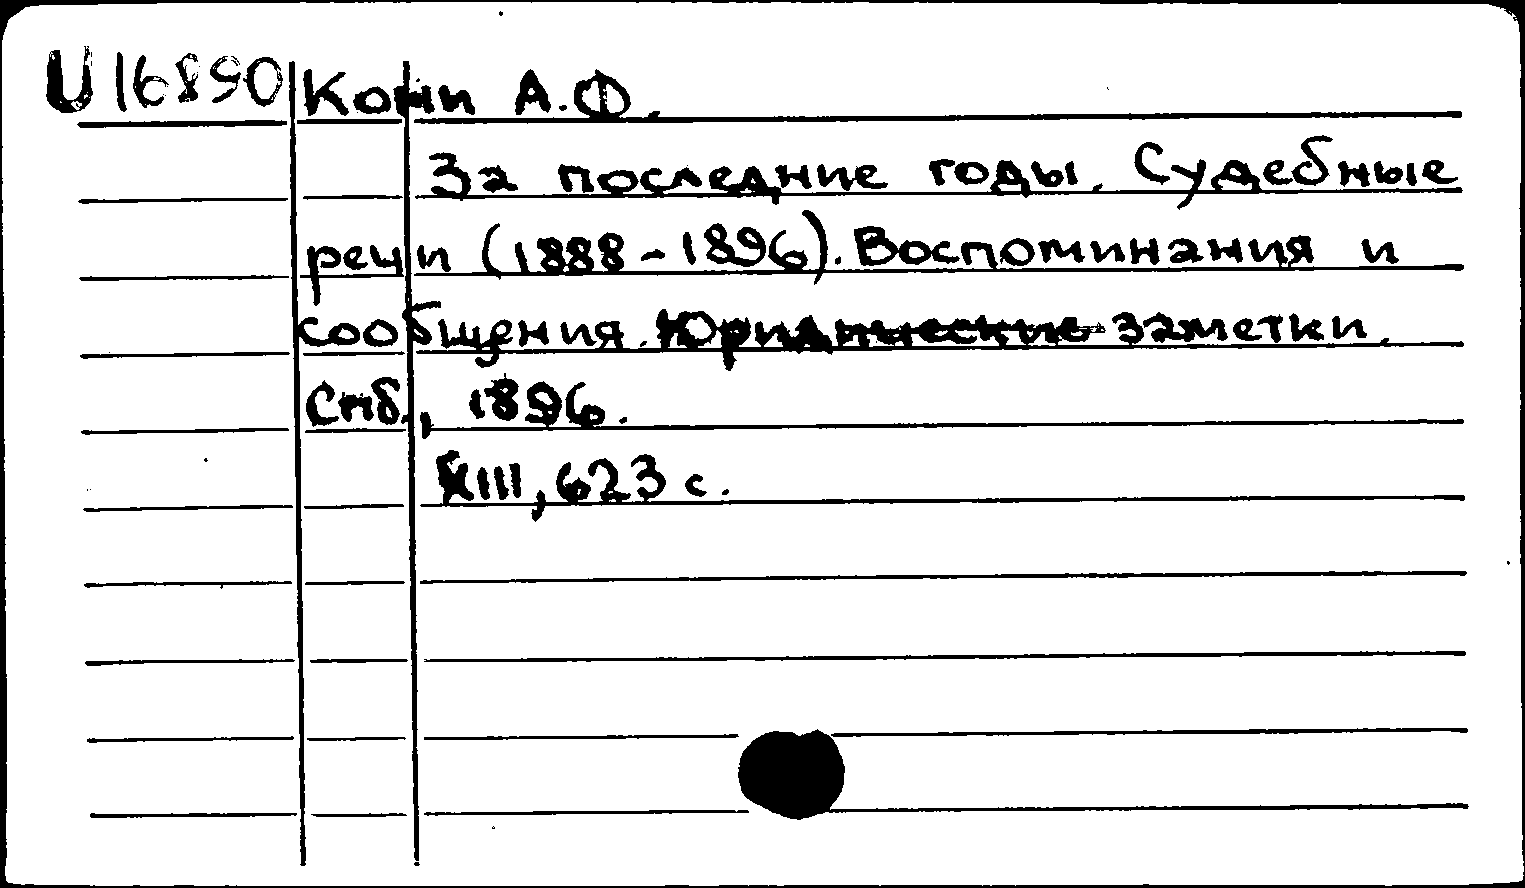 U 16890 Кони А.Ф.
За последние годы. Судебные
речи (1888-1896). Воспоминания и
сообщения. Юридические заметки.
Спб., 1896.
XIII, 623 с.